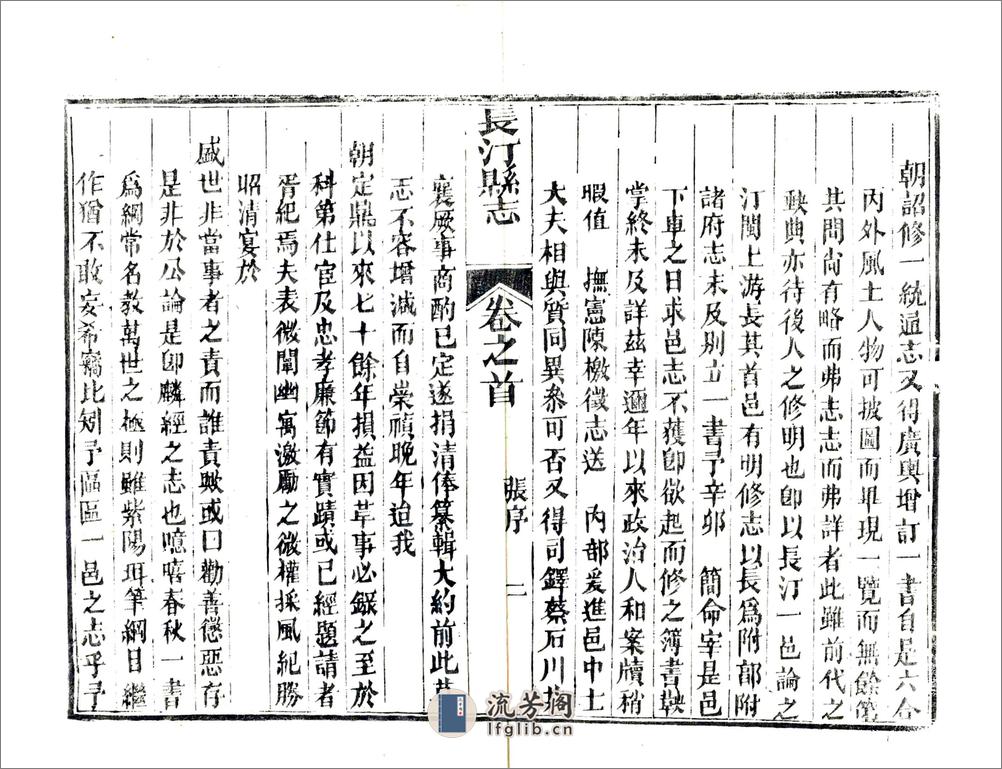 朝詔修一統通志又得廣輿增訂一書自是六合
內外風土人物可披圖而畢現一覽而無餘第
其間尚有略而弗志志而弗詳者此雖前代之
缺典亦待後人之修明也卽以長汀一邑論之
汀閩上游長其首邑有明修志以長爲附郭附
諸府志未及別立一書予辛卯　簡命宰是邑
下車之日求邑志不獲卽欲起而修之簿書鞅
掌終未及詳茲幸邇年以來政治人和案牘稍
暇值　撫憲陳檄徵志送　內部爰進邑中士
大夫相與質同異參可否又得司鐸蔡石川
長汀縣志　卷之首　張序　二
襄厥事商酌已定遂捐清俸纂輯大約前此
志不容增減而自崇禎晚年迫我
朝定鼎以來七十餘年損益因革事必錄之至於
科第仕宦及忠孝廉節有實蹟或已經題請者
胥紀焉夫表微闡幽寓激勵之微權採風紀勝
昭清宴於
盛世非當事者之責而誰責歟或曰勸善懲惡存
是非於公論是卽麟經之志也噫嘻春秋一書
爲綱常名敎萬世之極則雖紫陽珥筆綱目繼
作猶不敢妄希竊比矧予區區一邑之志乎予
流芳閣
lfglib.cn